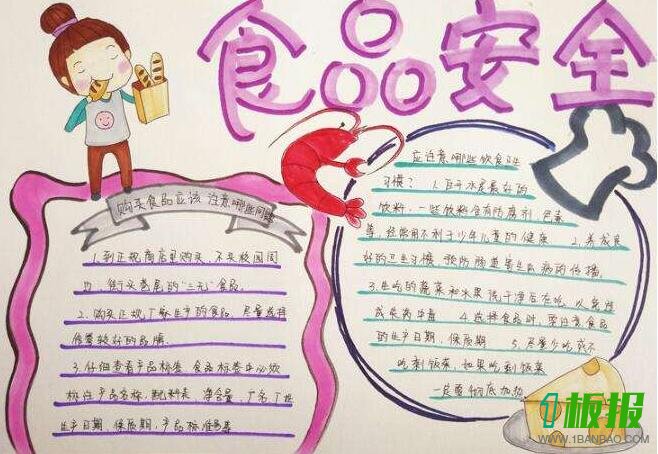 食品安全
购买食品应该注意哪些问题
1.到正规商店里购买，不买校园周
边、街头巷尾的"三无"食品。
2.购买正规厂家生产的食品，尽量选择
信誉较好的品牌。
3.仔细查看产品标签，食品标签中必须
标注产品名称、配料表、净含量、厂名厂址
生产日期、保质期、产品标准号等
应注意哪些饮食卫生
习惯？ 1.白开水是最好的
饮料，一些饮料含有防腐剂、色素
等，经常饮用不利于少年儿童的健康 2.养成良
好的卫生习惯 预防肠道寄生虫病的传播
3.生吃的蔬菜和水果洗干净后在吃，以免造
成农药中毒 4.选择食品时，要注意食品
的生产日期、保质期 5.尽量少吃或不
吃剩饭菜，如果吃剩饭菜
一定要彻底加热
板报
WWW.1BANBAO.COM